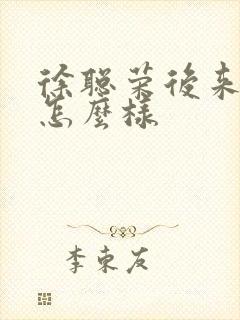 徐聪荣後来
怎麼樣
李東友